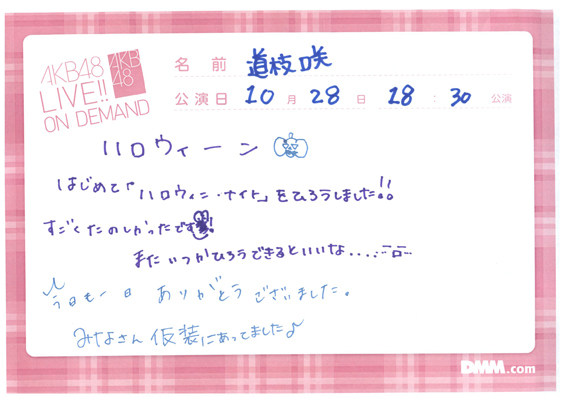 AKB48
LIVE!!
ON DEMAND
AKB
48
名前 道枝咲
公演日 10月28日 18:30 公演
ハロウィーン
はじめて「ハロウィン・ナイト」をひろうしました!!
すごくたのしかったです!
またいつかひろうできるといいな....
今日も一日 ありがとうございました。
みなさん仮装にあってました♪
DMM.com